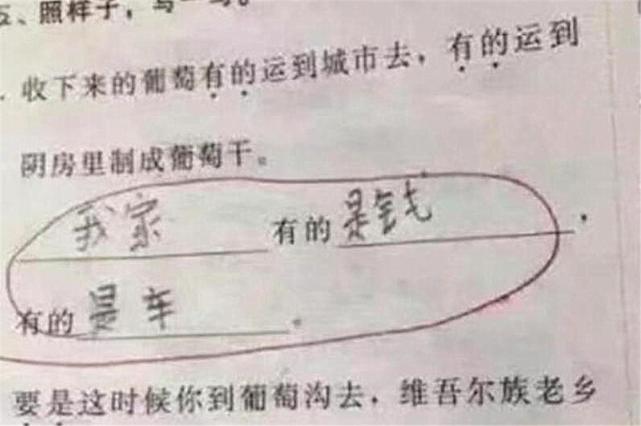 五、照样子，写一写。
. 收下来的葡萄有的运到城市去，有的运到
阴房里制成葡萄干。
我家有的是钱，
有的是车。
要是这时候你到葡萄沟去，维吾尔族老乡